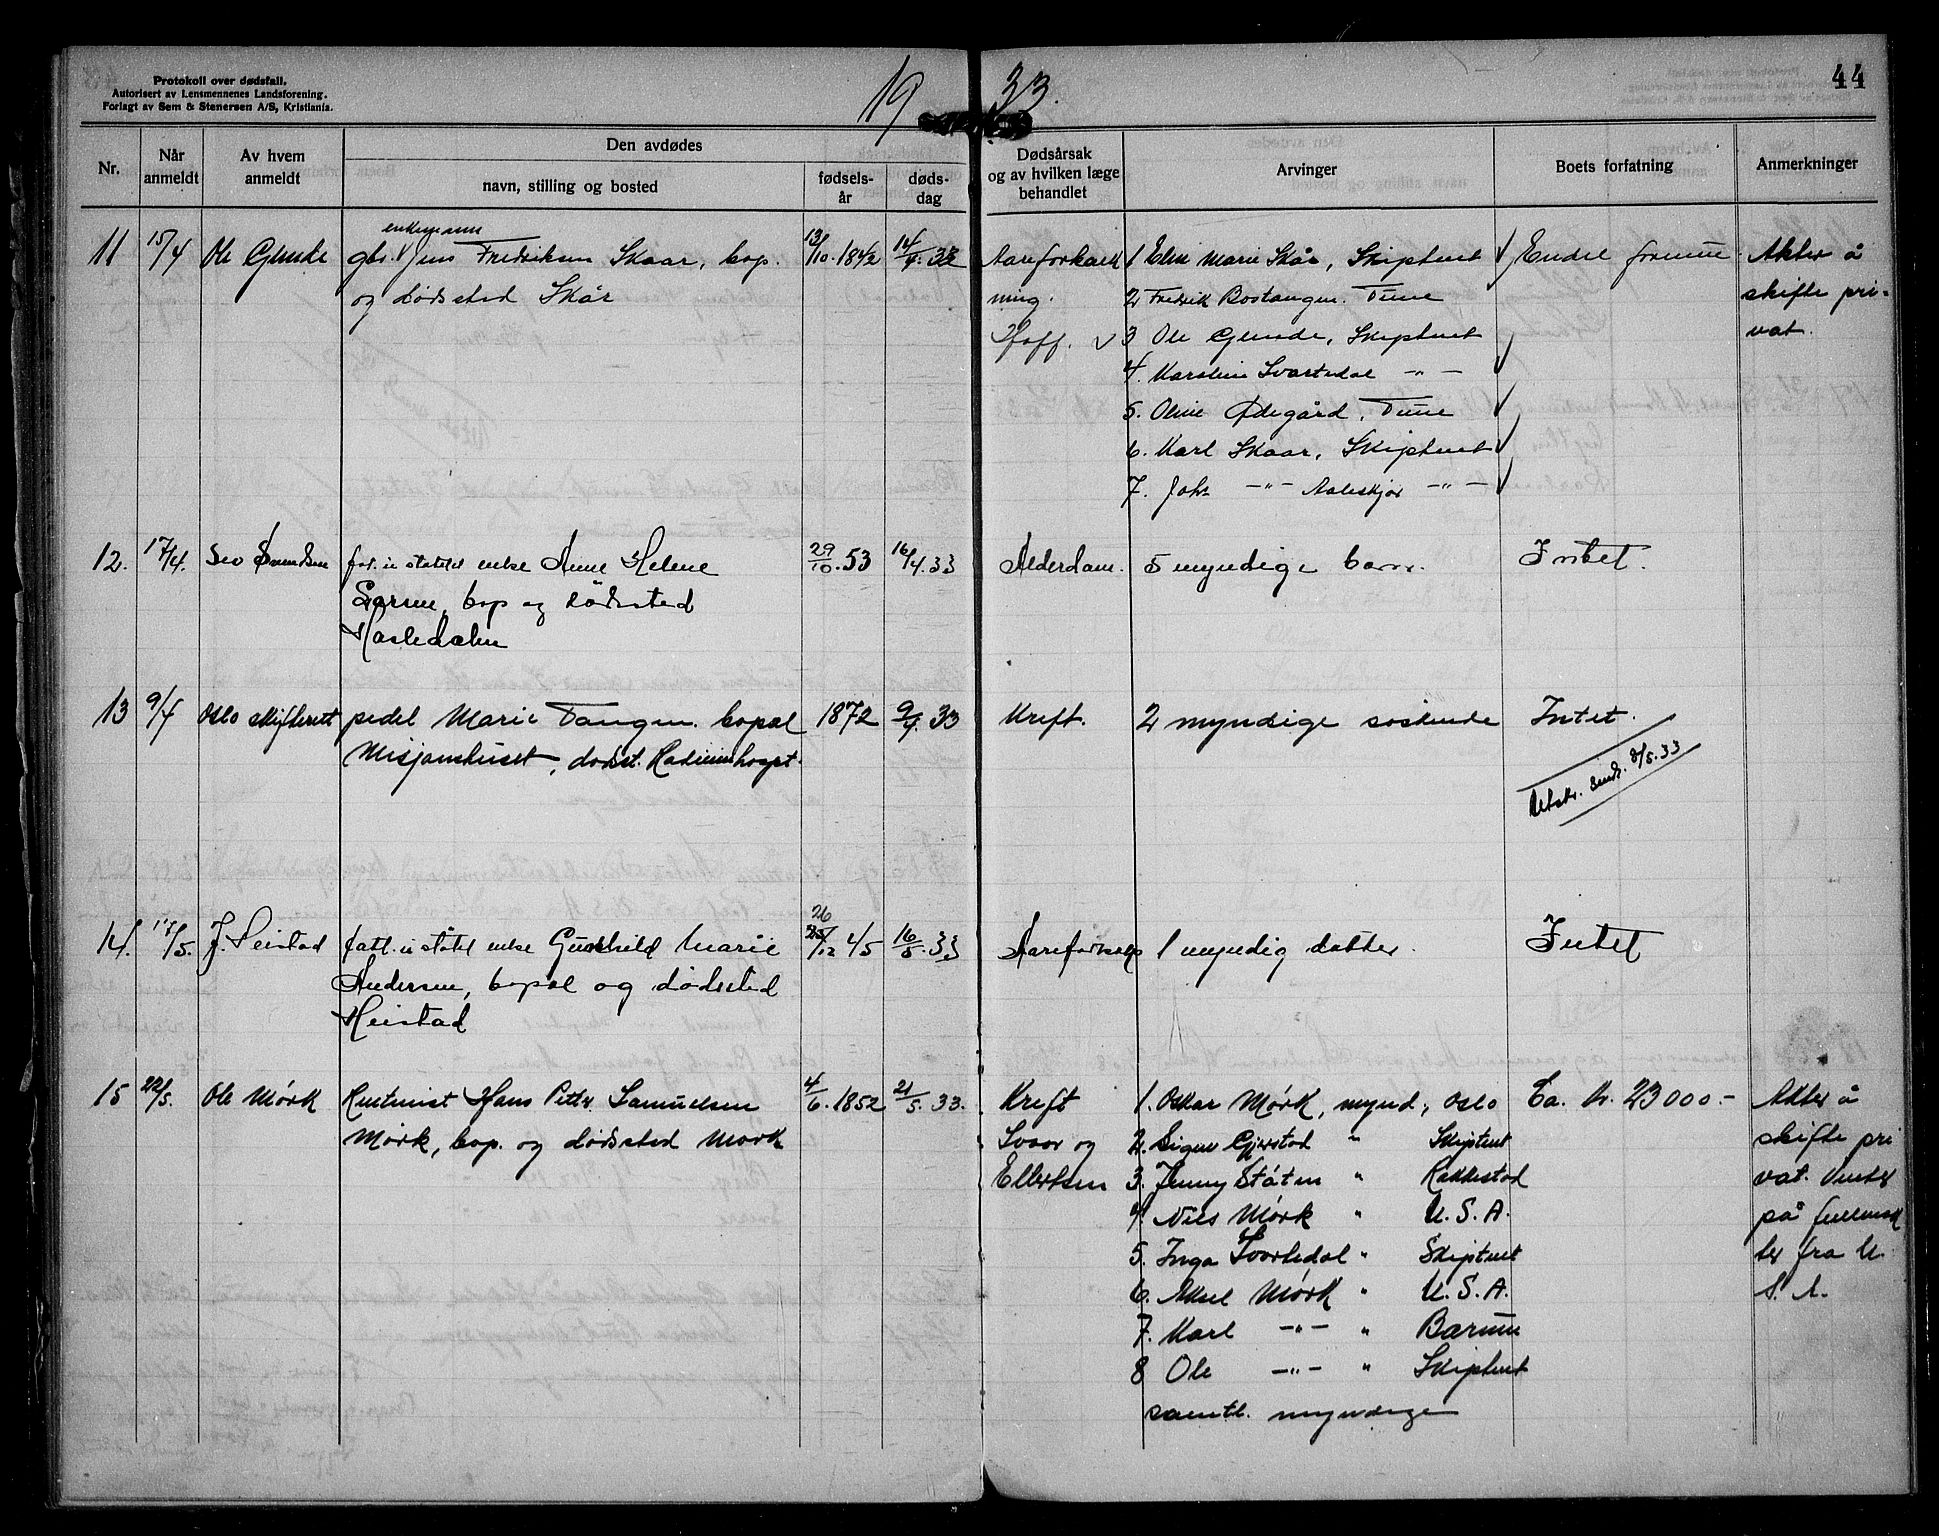 Protokoll over dødsfall.
Autorisert av Lensmennenes Landsforening.
Forlagt av Sem & Stenersen A/S, Kristiania.
19 33.
44
Nr.
Når anmeldt
Av hvem anmeldt
Den avdødes
navn, stilling og bosted
fødsels-år
døds-dag
Dødsårsak og av hvilken læge behandlet
Arvinger
Boets forfatning
Anmerkninger
11 15/4 Ole Glende
enkemann
gbr. Jens Fredriksen Skaar, bop.
og dødssted Skår
13/10. 1842 14/4. 33
Aareforkalk
ning.
Hoff.
1 Elin Marie Skår, Skiptvet
2 Fredrik Bostangen. Tune
3 Ole Glende, Skiptvet
4. Karoline Svartedal -"-
5. Oline Ødegård, Tune
6. Karl Skaar, Skiptvet
7. Johs -"- -"-
Endel formue
Akter å
skifte pri-
vat.
12. 17/4. Svendsen
enke Anne Helene
Larsen, bop og dødssted
Hasledalen
29/10. 53 16/4 33
Alderdom.
5 myndige barn.
Intet.
13 9/4 Oslo skifterett
Marie Tangen. bopæl
Misjonshuset, dødst. Radiumhospt.
1872 9/4. 33
Kreft.
2 myndige søskende
Intet.
Utskr. sendt. 8/5. 33
14. 17/5. J. Heistad
fatt. u støtet enke Gunhild Marie
Andersen, bopæl og dødssted
Heistad
26
25/12 45 16/5. 33
Aareforkalk
1 myndig datter.
Intet
15 22/5. Ole Mørk
Rentenist Hans Petter Samuelsen
Mørk, bop. og dødssted Mørk
4/6. 1852 21/5. 33.
Kreft
Svaar og
Ellertsen
1. Oskar Mørk, mynd., Oslo
2. Signe Gjerstad " Skiptvet
3. Jenny Støten " Rakkestad
4. Nils Mørk " U. S. A.
5. Inga Svartedal " Skiptvet
6. Aksel Mørk " U. S. A.
7. Karl -"- " Bærum
8 Ole -"- " Skiptvet
samtl. myndige
Ca. kr. 23 000.-
Akter å
skifte pri
vat. Venter
på fullmak
ter fra U.
S. A.